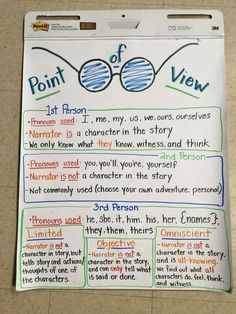 Post-it
3M
Point of View
1st Person
• Pronouns used: I, me, my, us, we, ours, ourselves
• Narrator is a character in the story
• We only know what they know, witness, and think
2nd Person
• Pronouns used: you, you'll, you're, yourself
• Narrator is not in the story
• Not commonly used (choose your own adventure; personal)
3rd Person
• Pronouns used: he, she, it, him, his, her, {names},
they, them, theirs
Limited
- Narrator is not a
character in story, but
tells story and actions/
thoughts of one of
the characters
Objective
- Narrator is not a
character in story,
and can only tell what
is said or done.
Omniscient
- Narrator is not a
character in story and
is all-knowing.
We find out what all
characters do, feel, think,
and witness.